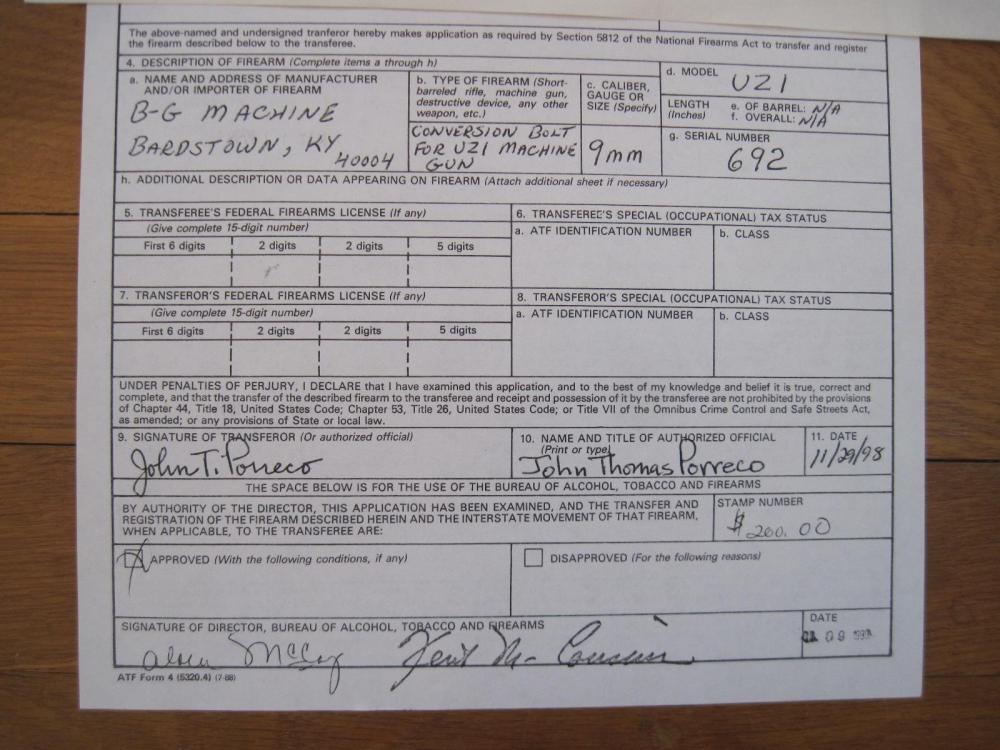 The above-named and undersigned tranferor hereby makes application as required by Section 5812 of the National Firearms Act to transfer and register
the firearm described below to the transferee.
4. DESCRIPTION OF FIREARM (Complete items a through h)
a. NAME AND ADDRESS OF MANUFACTURER
AND/OR IMPORTER OF FIREARM
B-G MACHINE
BARDSTOWN, KY
40004
b. TYPE OF FIREARM (Short-
barreled rifle, machine gun,
destructive device, any other
weapon, etc.)
CONVERSION BOLT
FOR UZI MACHINE
GUN
c. CALIBER,
GAUGE OR
SIZE (Specify)
9mm
d. MODEL
UZI
LENGTH
(Inches)
e. OF BARREL: N/A
f. OVERALL: N/A
g. SERIAL NUMBER
692
h. ADDITIONAL DESCRIPTION OR DATA APPEARING ON FIREARM (Attach additional sheet if necessary)
5. TRANSFEREE'S FEDERAL FIREARMS LICENSE (If any)
(Give complete 15-digit number)
First 6 digits 2 digits 2 digits 5 digits
6. TRANSFEREE'S SPECIAL (OCCUPATIONAL) TAX STATUS
a. ATF IDENTIFICATION NUMBER b. CLASS
7. TRANSFEROR'S FEDERAL FIREARMS LICENSE (If any)
(Give complete 15-digit number)
First 6 digits 2 digits 2 digits 5 digits
8. TRANSFEROR'S SPECIAL (OCCUPATIONAL) TAX STATUS
a. ATF IDENTIFICATION NUMBER b. CLASS
UNDER PENALTIES OF PERJURY, I DECLARE that I have examined this application, and to the best of my knowledge and belief it is true, correct and
complete, and that the transfer of the described firearm to the transferee and receipt and possession of it by the transferee are not prohibited by the provisions
of Chapter 44, Title 18, United States Code; Chapter 53, Title 26, United States Code; or Title VII of the Omnibus Crime Control and Safe Streets Act,
as amended; or any provisions of State or local law.
9. SIGNATURE OF TRANSFEROR (Or authorized official)
John T. Porreco
10. NAME AND TITLE OF AUTHORIZED OFFICIAL
(Print or type)
John Thomas Porreco
11. DATE
11/29/98
THE SPACE BELOW IS FOR THE USE OF THE BUREAU OF ALCOHOL, TOBACCO AND FIREARMS
BY AUTHORITY OF THE DIRECTOR, THIS APPLICATION HAS BEEN EXAMINED, AND THE TRANSFER AND
REGISTRATION OF THE FIREARM DESCRIBED HEREIN AND THE INTERSTATE MOVEMENT OF THAT FIREARM,
WHEN APPLICABLE, TO THE TRANSFEREE ARE:
STAMP NUMBER
$ 200.00
X APPROVED (With the following conditions, if any)
DISAPPROVED (For the following reasons)
SIGNATURE OF DIRECTOR, BUREAU OF ALCOHOL, TOBACCO AND FIREARMS
DATE
09
ATF Form 4 (5320.4) (7-88)